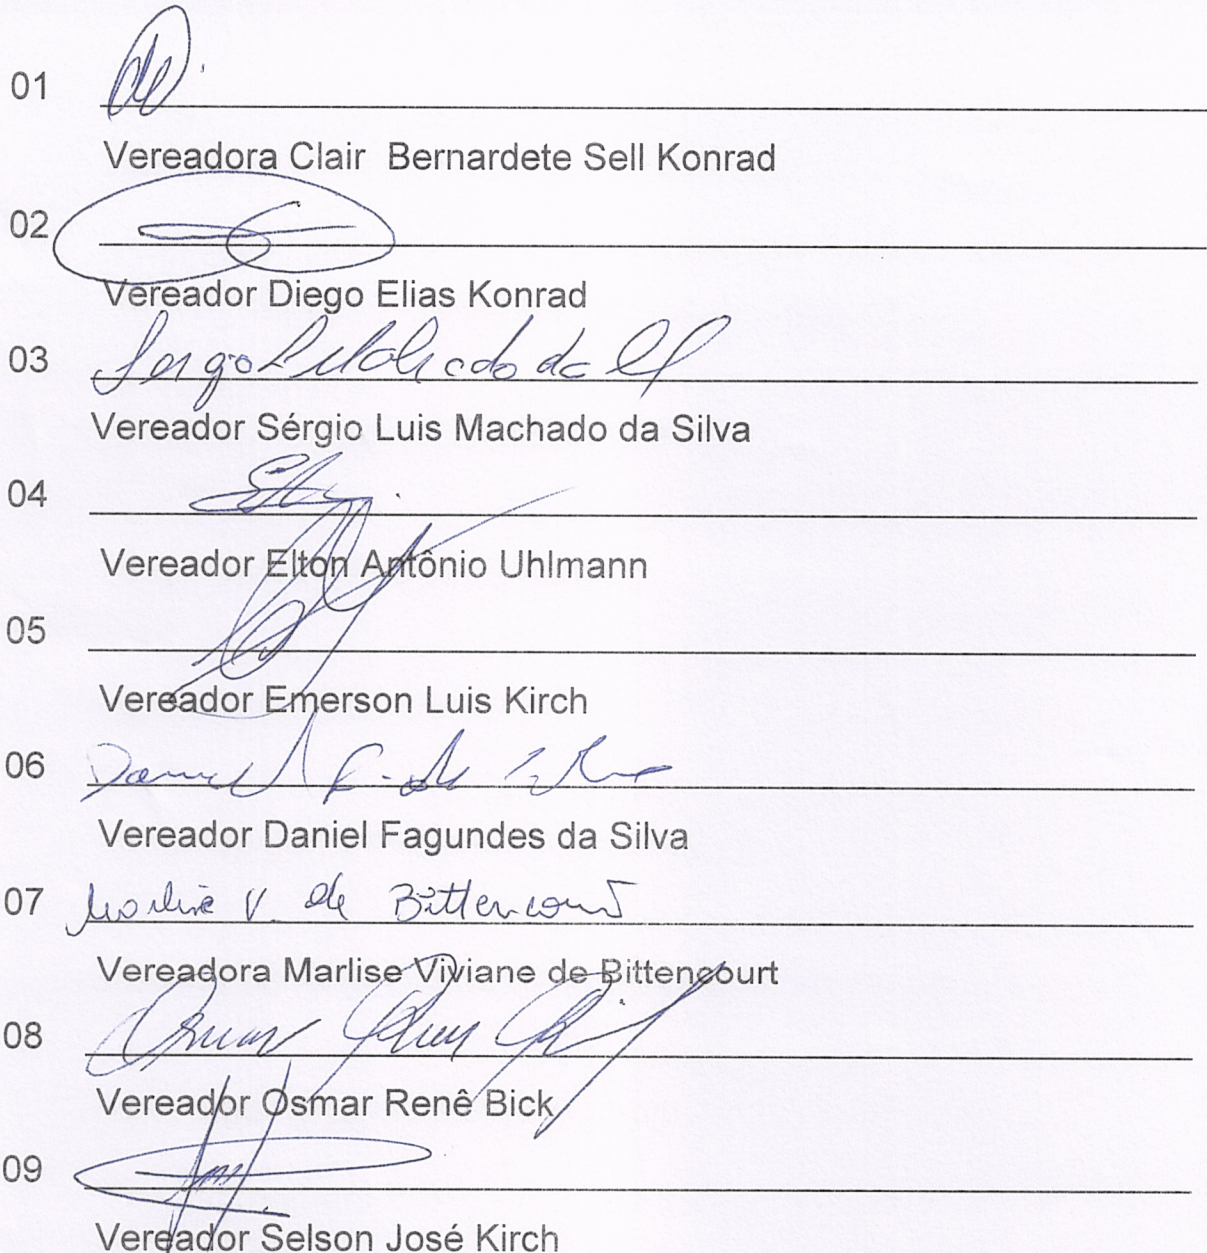 01
Vereadora Clair Bernardete Sell Konrad
02
Vereador Diego Elias Konrad
03 Sergo L Machado da
Vereador Sérgio Luis Machado da Silva
04
Vereador Elton Antônio Uhlmann
05
Vereador Emerson Luis Kirch
06 Daniel F. da Silva
Vereador Daniel Fagundes da Silva
07 Marlise V. de Bittencourt
Vereadora Marlise Viviane de Bittencourt
08 Osmar
Vereador Osmar Renê Bick
09
Vereador Selson José Kirch